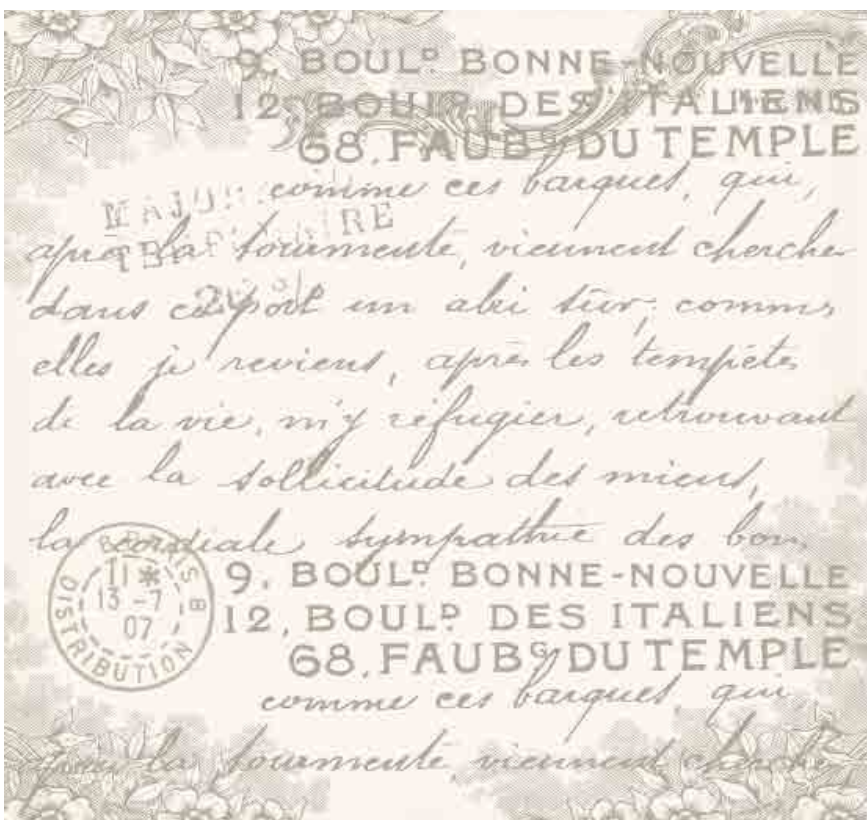 9, BOULD BONNE-NOUVELLE
12, BOULD DES ITALIENS
68, FAUBG DU TEMPLE
comme ces barques, qui,
MAJOR
RE
après la tourmente, viennent chercher
dans ce port un abri sûr; comme
elles je reviens, après les tempêtes
de la vie, m'y réfugier, retrouvant
avec la sollicitude des miens,
la cordiale sympathie des bons
PARIS 8
11 *
13 -7
07
DISTRIBUTION
9, BOULD BONNE-NOUVELLE
12, BOULD DES ITALIENS
68, FAUBG DU TEMPLE
comme ces barques, qui,
la tourmente, viennent cherche